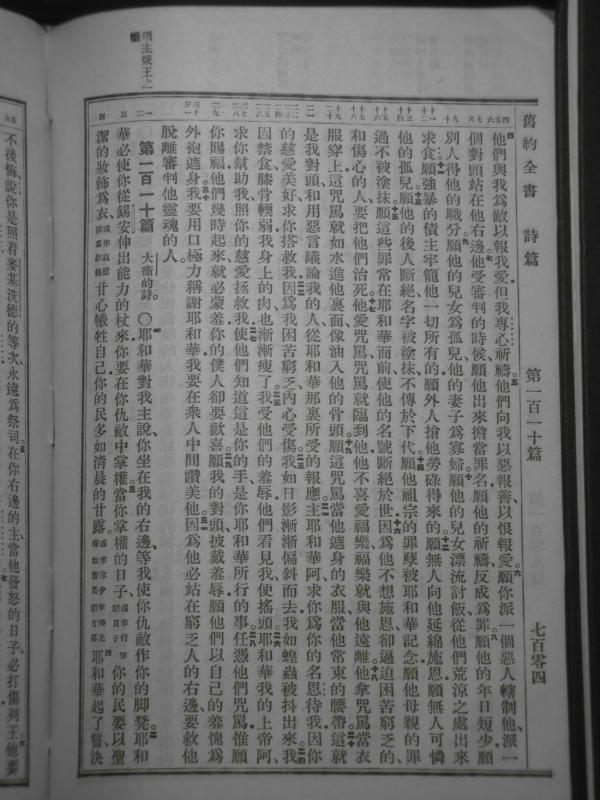 舊約全書 詩篇 第一百一十篇 七百零四
他們與我爲敵以報我愛但我專心祈禱他們向我以惡報善以恨報愛願你派一個惡人轄制他派一
個對頭站在他右邊他受審判的時候願他出來擔當罪名願他的祈禱反成爲罪願他的年日短少願
別人得他的職分願他的兒女爲孤兒他的妻子爲寡婦願他的兒女漂流討飯從他們荒涼之處出來
求食願強暴的債主牢籠他一切所有的願外人搶他勞碌得來的願無人向他延綿施恩願無人可憐
他的孤兒願他的後人斷絕名字被塗抹不傳於下代願他祖宗的罪孽被耶和華記念願他母親的罪
過不被塗抹願這些罪常在耶和華面前使他的名號斷絕於世因爲他不想施恩卻逼迫困苦窮乏的
和傷心的人要把他們治死他愛咒罵咒罵就臨到他他不喜愛福樂福樂就與他遠離他拿咒罵當衣
服穿上這咒罵就如水進他裏面像油入他的骨頭願這咒罵當他遮身的衣服當他常束的腰帶這就
是我對頭和用惡言議論我的人從耶和華那裏所受的報應主耶和華阿求你爲你的名恩待我因你
的慈愛美好求你搭救我因爲我困苦窮乏內心受傷我如日影漸漸偏斜而去我如蝗蟲被抖出來我
因禁食膝骨軟弱我身上的肉也漸漸瘦了我受他們的羞辱他們看見我便搖頭耶和華我的上帝阿
求你幫助我照你的慈愛拯救我使他們知道這是你的手是你耶和華所行的事任憑他們咒罵惟願
你賜福他們幾時起來就必蒙羞你的僕人卻要歡喜願我的對頭披戴羞辱願他們以自己的羞愧爲
外袍遮身我要用口極力稱謝耶和華我要在衆人中間讚美他因爲他必站在窮乏人的右邊要救他
脫離審判他靈魂的人
第一百一十篇 大衛的詩 〇耶和華對我主說你坐在我的右邊等我使你仇敵作你的脚凳耶和
華必使你從錫安伸出能力的杖來你要在你仇敵中掌權當你掌權的日子 你的民要以聖
潔的妝飾爲衣 甘心犧牲自己你的民多如清晨的甘露 耶和華起了誓決
不後悔說你是照着麥基洗德的等次永遠爲祭司在你右邊的主當他發怒的日子必打傷列王他要